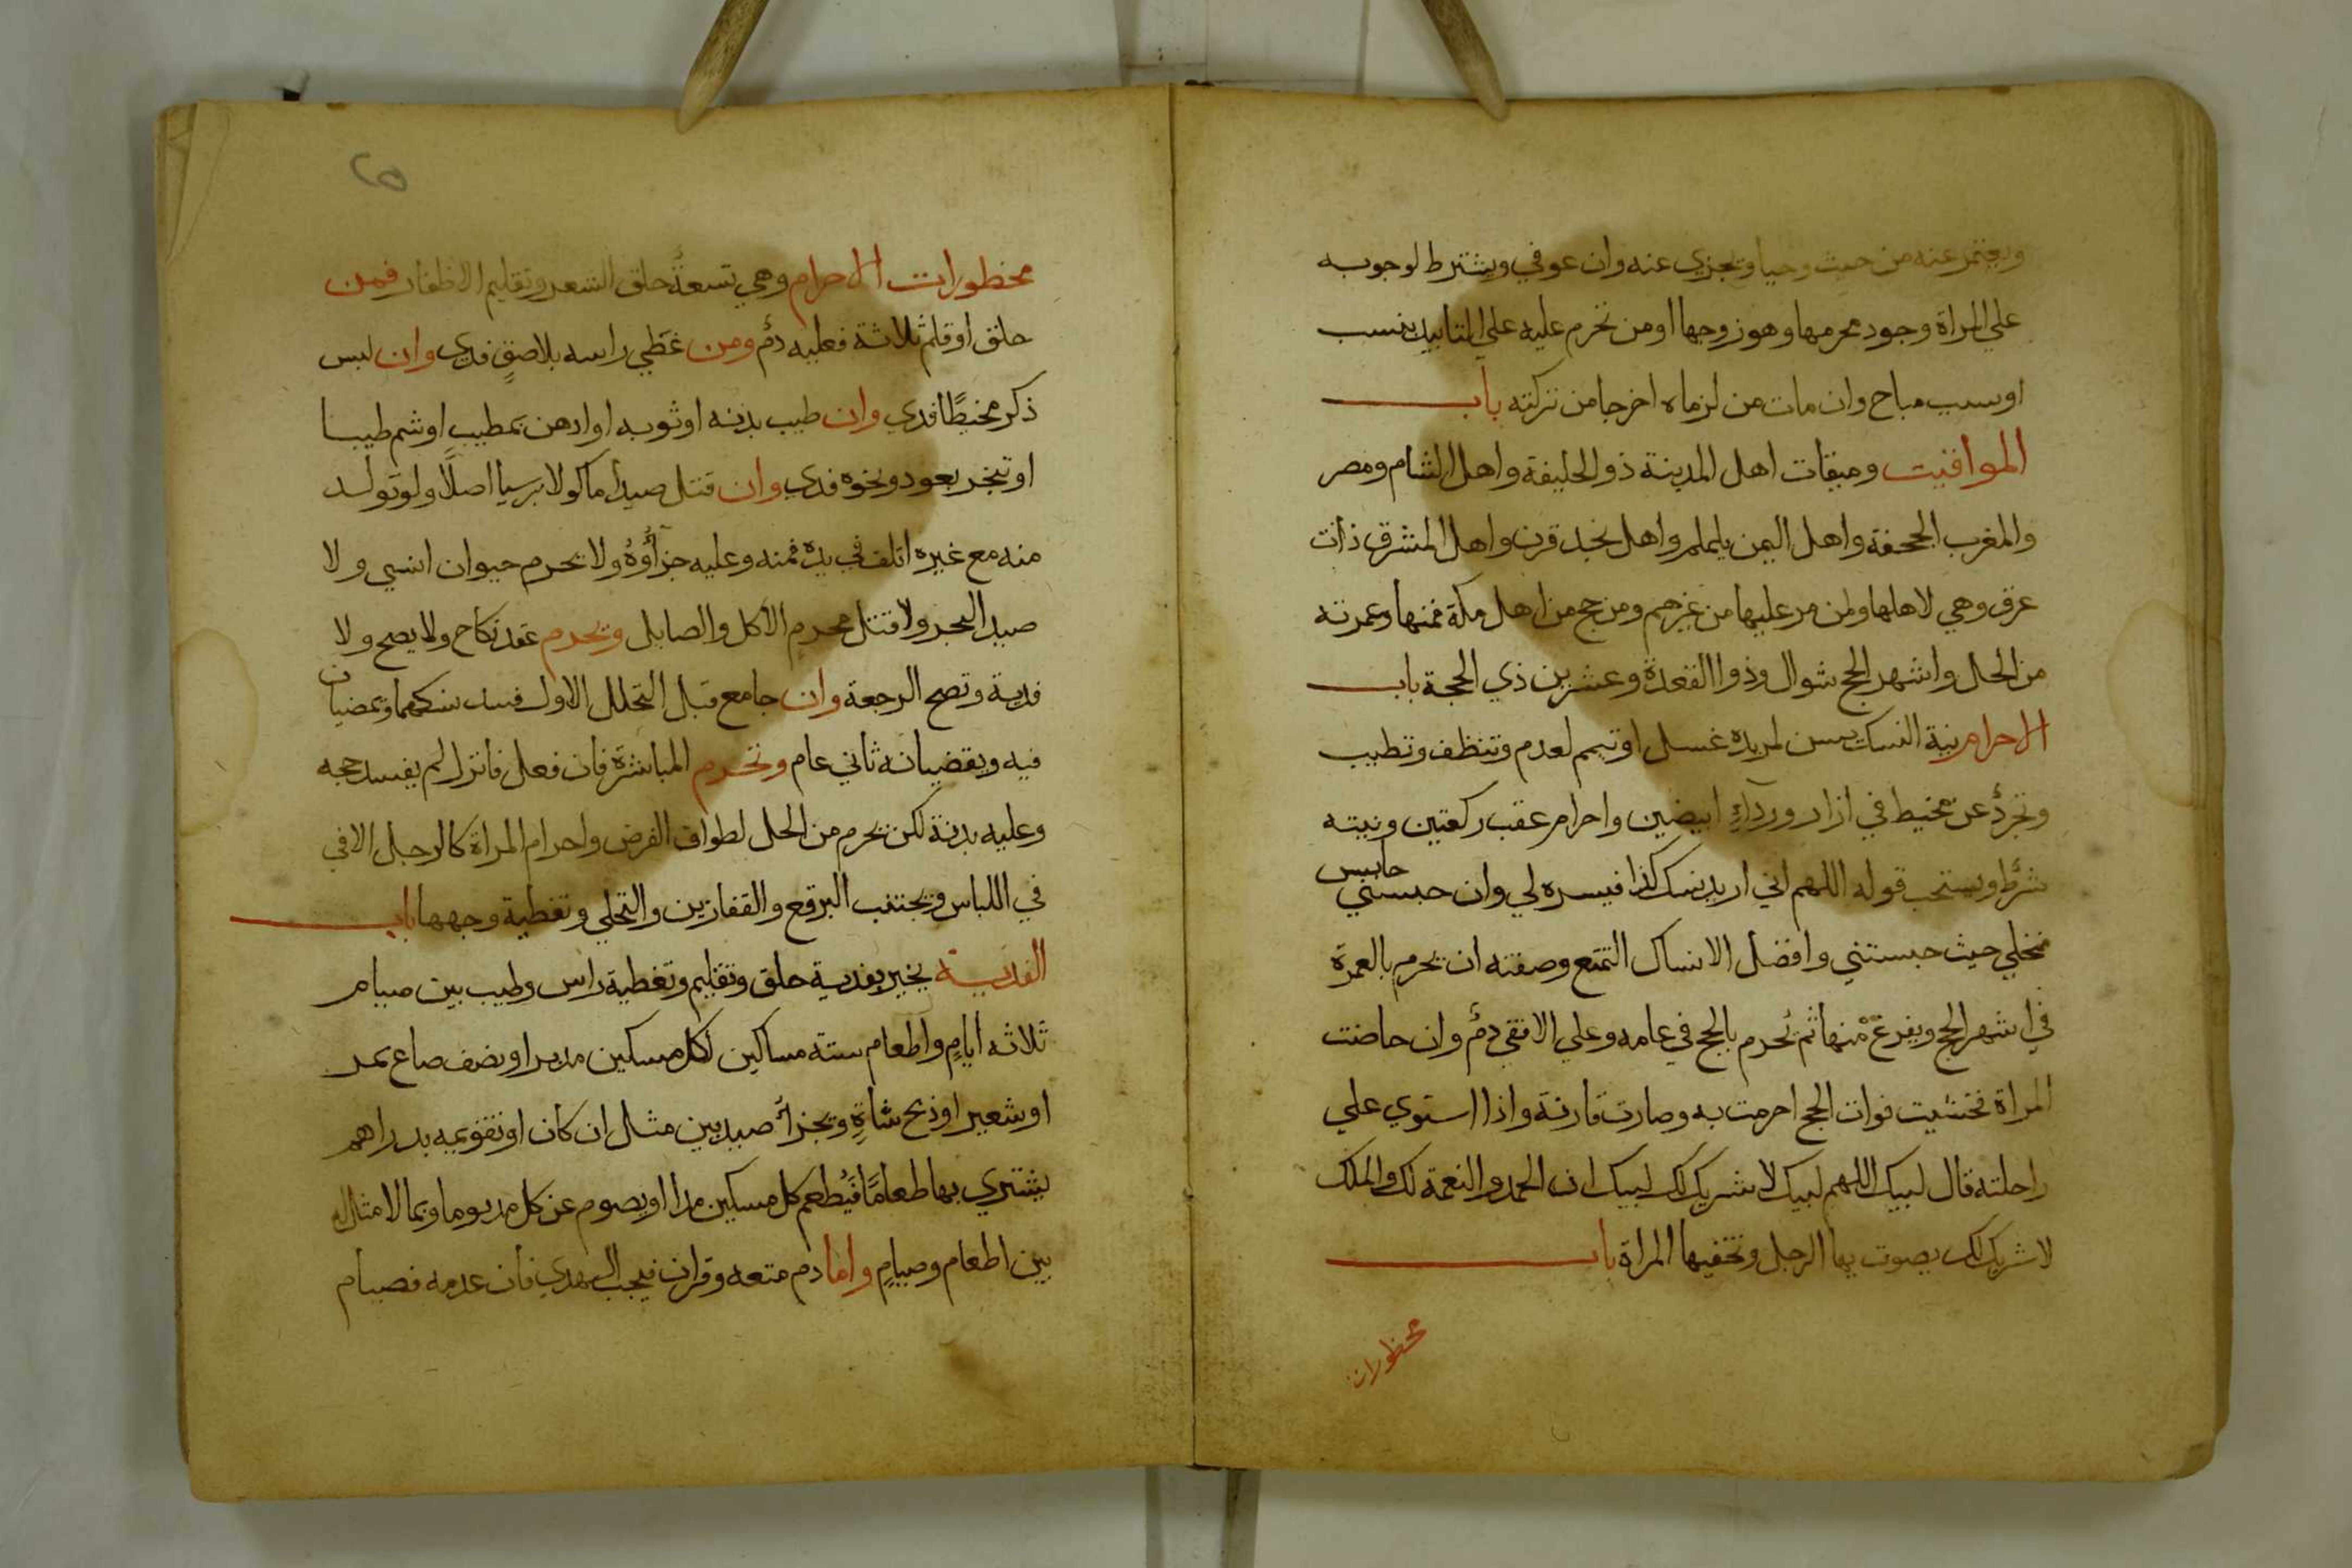 ويعتمر عنه من حيث وجبا ويجزي عنه وان عوفي ويشترط لوجوبه
علي المراة وجود محرمها وهو زوجها او من تحرم عليه علي التابيد بنسب
او سبب مباح وان مات من لزماه اخرجا من تركته باب
المواقيت وميقات اهل المدينة ذو الحليفة واهل الشام ومصر
والمغرب الجحفة واهل اليمن يلملم واهل نجد قرن واهل المشرق ذات
عرق وهي لاهلها ولمن مر عليها من غيرهم ومن حج من اهل مكة فمنها وعمرته
من الحل واشهر الحج شوال وذوا القعدة وعشر من ذي الحجة باب
الاحرام نية النسك يسن لمريده غسل او تيمم لعدم وتنظف وتطيب
وتجرد عن مخيط في ازار ورداءٍ ابيضين واحرام عقب ركعتين ونيته
شرط ويستحب قوله اللهم اني اريد نسك كذا فيسره لي وان حبسني حابس
فمحلي حيث حبستني وافضل الانساك التمتع وصفته ان يحرم بالعمرة
في اشهر الحج ويفرغ منها ثم يحرم بالحج في عامه وعلي الافقي دمٌ وان حاضت
المراة فخشيت فوات الحج احرمت به وصارت قارنة واذا استوي علي
راحلته قال لبيك اللهم لبيك لا شريك لك لبيك ان الحمد والنعمة لك والملك
لا شريك لك يصوت بها الرجل وتخفيها المراة باب
محظورات
٢٥
محظورات الاحرام وهي تسعةٌ حلق الشعر وتقليم الاظفار فمن
حلق او قلم ثلاثة فعليه دمٌ ومن غطي راسه بلاصقٍ فدي وان لبس
ذكر مخيطًا فدي وان طيب بدنه او ثوبه او ادهن بمطيبٍ او شم طيبا
او تبخر بعود ونحوه فدي وان قتل صيداً ماكولا بريا اصلاً ولو تولد
منه مع غيره او تلف في يده فمنه وعليه جزاؤُهُ ولا يحرم حيوان انسي ولا
صيد البحر ولا قتل محرم الاكل والصايل ويحرم عقد نكاح ولا يصح ولا
فدية وتصح الرجعة وان جامع قبل التحلل الاول فسد نسكهما ويمضيان
فيه ويقضيانه ثاني عام وتحرم المباشرة فان فعل فانزل لم يفسد حجه
وعليه بدنة لكن يحرم من الحل لطواف الفرض واحرام المراة كالرجل الا في
في اللباس ويجتنب البرقع والقفازين والتحلي وتغطية وجهها باب
الفدية يخير بفدية حلق وتقليم وتغطية راس وطيب بين صيام
ثلاثه ايامٍ واطعام سته مساكين لكل مسكين مد بر او نصف صاع تمر
او شعير او ذبح شاةٍ وبجزاء صيد بين مثل ان كان او تقويمه بدراهم
يشتري بها طعامًا فيُطعم كل مسكين مدا او يصوم عن كل مد يوما وبما لا مثل له
بين اطعام وصيامٍ واما دم متعه وقران فيجب الهدي فان عدمه فصيام